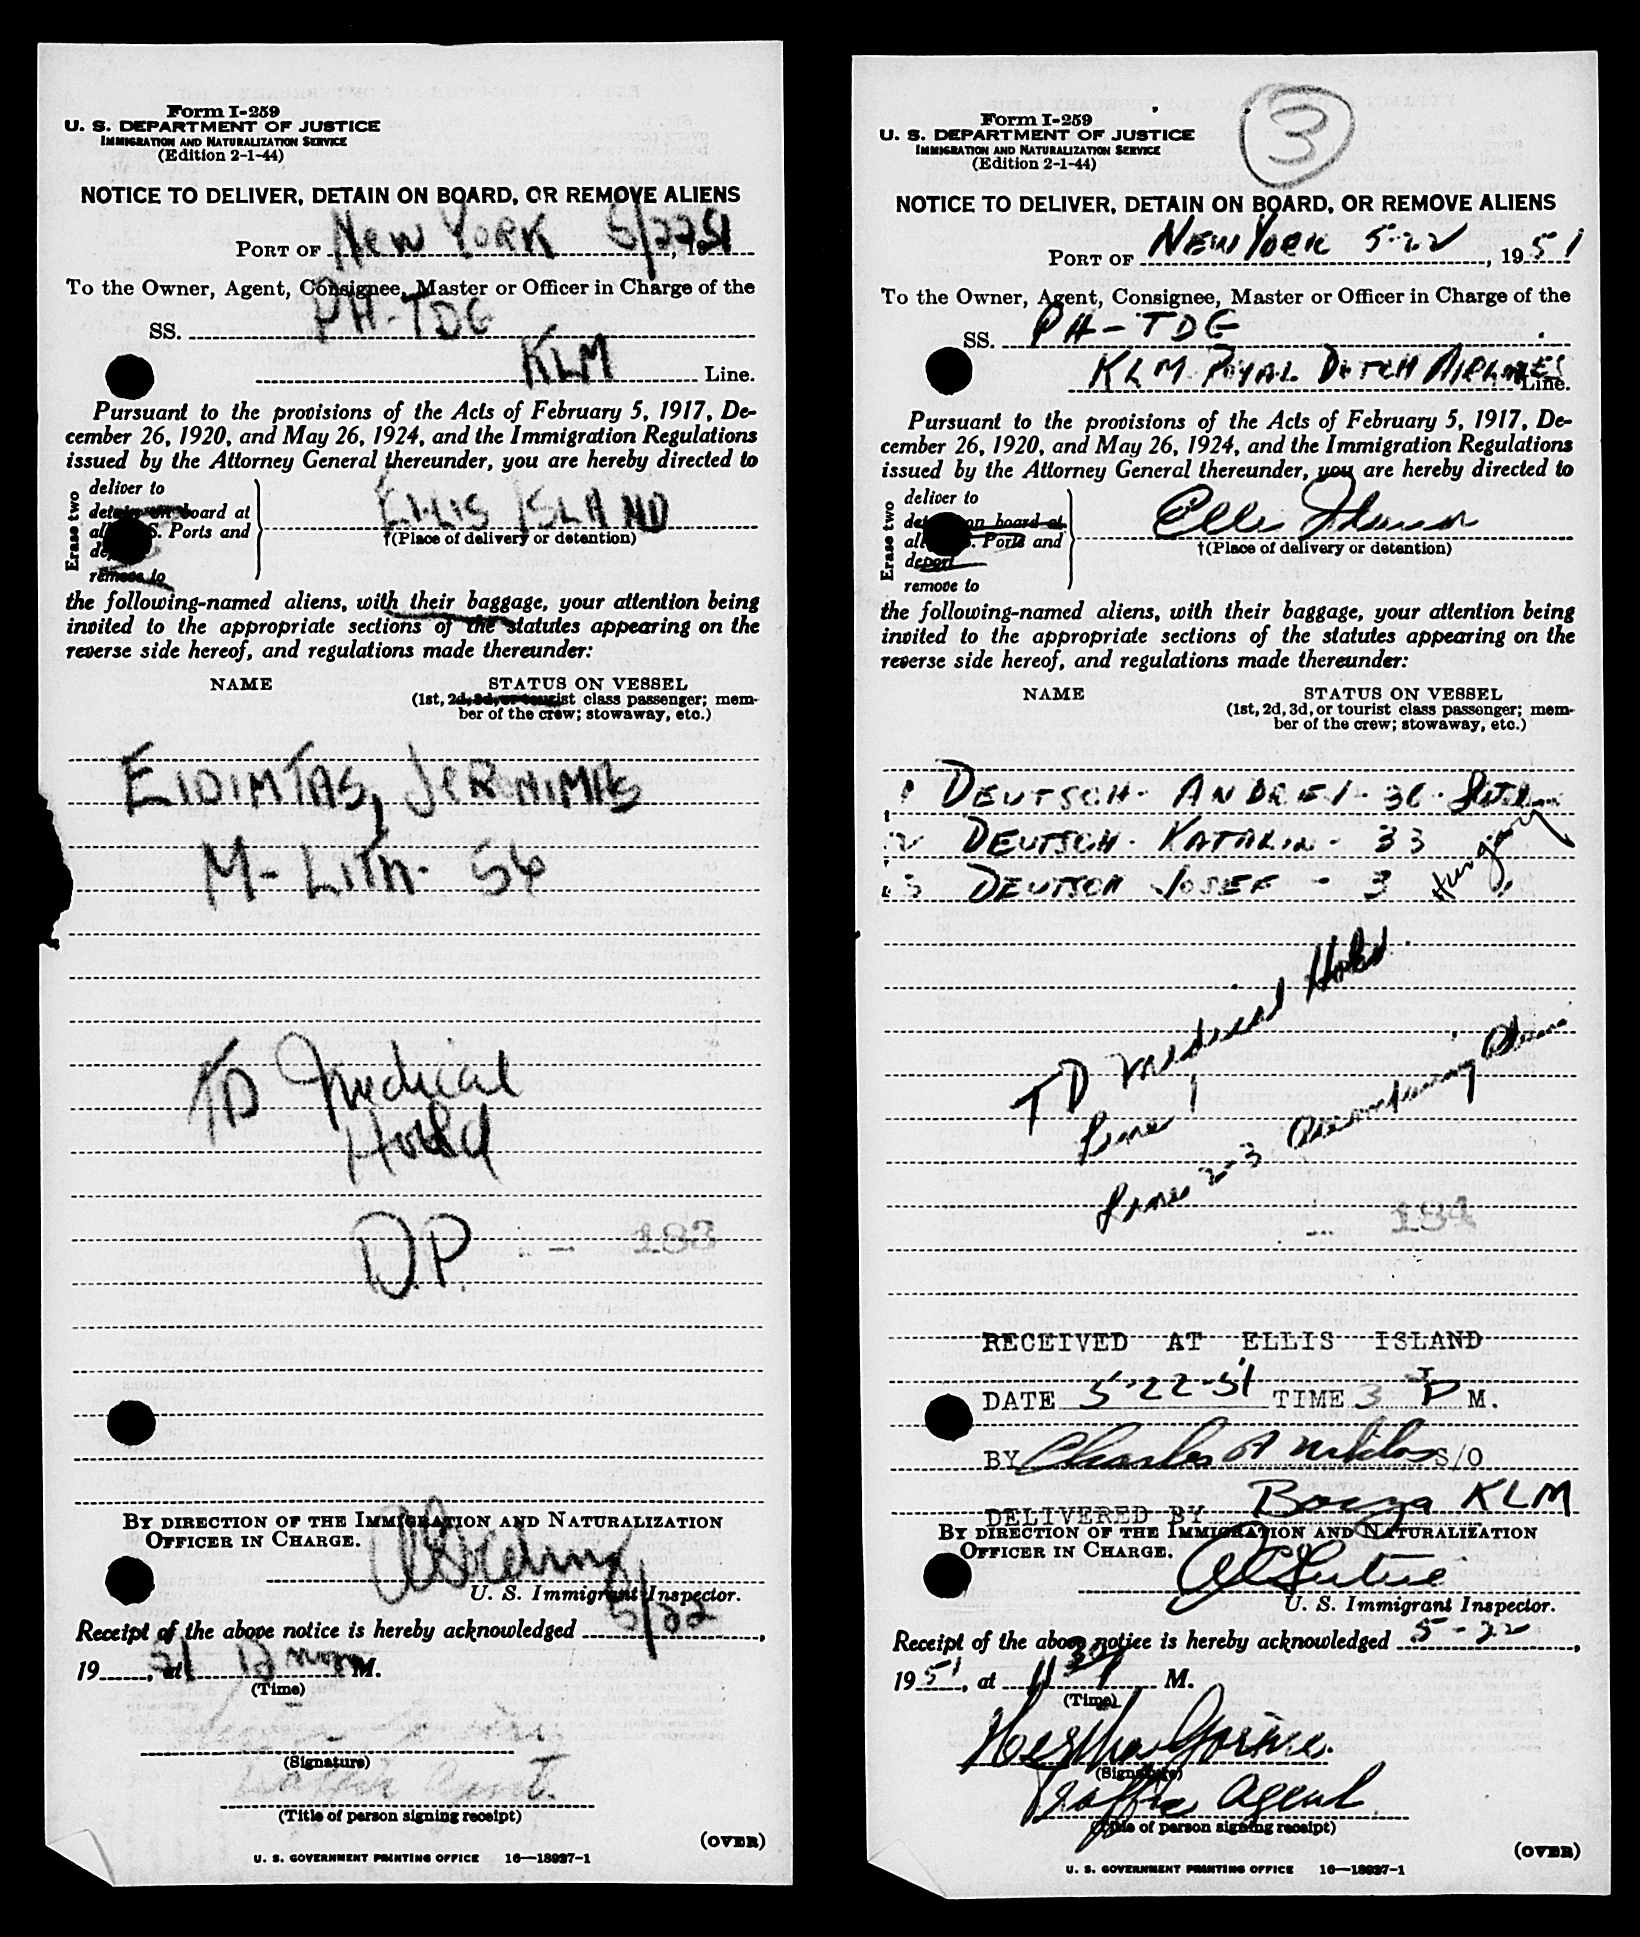 Form I-259
U. S. DEPARTMENT OF JUSTICE
IMMIGRATION AND NATURALIZATION SERVICE
(Edition 2-1-44)
NOTICE TO DELIVER, DETAIN ON BOARD, OR REMOVE ALIENS
PORT OF New York 5/22 51, 19
To the Owner, Agent, Consignee, Master or Officer in Charge of the
SS. PH-TDG
KLM Line.
Pursuant to the provisions of the Acts of February 5, 1917, De-
cember 26, 1920, and May 26, 1924, and the Immigration Regulations
issued by the Attorney General thereunder, you are hereby directed to
Erase two
deliver to
detain on board at
all S. Ports and
remove to
ELLIS ISLAND
†(Place of delivery or detention)
the following-named aliens, with their baggage, your attention being
invited to the appropriate sections of the statutes appearing on the
reverse side hereof, and regulations made thereunder:
NAME STATUS ON VESSEL
(1st, 2d, 3d, or tourist class passenger; mem-
ber of the crew; stowaway, etc.)
EIDIMTAS, JERONIMAS
M- LITH- 56
TD Medical
Hold
D.P. -- 183
BY DIRECTION OF THE IMMIGRATION AND NATURALIZATION
OFFICER IN CHARGE.
U. S. Immigrant Inspector.
Receipt of the above notice is hereby acknowledged 5/22,
19 51, at 12 noon M.
(Time)
(Signature)
(Title of person signing receipt)
(OVER)
U. S. GOVERNMENT PRINTING OFFICE 16—18927-1
3
Form I-259
U. S. DEPARTMENT OF JUSTICE
IMMIGRATION AND NATURALIZATION SERVICE
(Edition 2-1-44)
NOTICE TO DELIVER, DETAIN ON BOARD, OR REMOVE ALIENS
PORT OF NEW YORK 5-22, 1951
To the Owner, Agent, Consignee, Master or Officer in Charge of the
SS. PH-TDG
KLM ROYAL DUTCH AIRLINES Line.
Pursuant to the provisions of the Acts of February 5, 1917, De-
cember 26, 1920, and May 26, 1924, and the Immigration Regulations
issued by the Attorney General thereunder, you are hereby directed to
Erase two
deliver to
on board at
all Ports and
deport
remove to
Ellis Island
†(Place of delivery or detention)
the following-named aliens, with their baggage, your attention being
invited to the appropriate sections of the statutes appearing on the
reverse side hereof, and regulations made thereunder:
NAME STATUS ON VESSEL
(1st, 2d, 3d, or tourist class passenger; mem-
ber of the crew; stowaway, etc.)
1 DEUTSCH- ANDREI- 36-
2 DEUTSCH- KATALIN- 33 Hungary
3 DEUTSCH JOSEF - 3
TD Medical Hold
Line 1
Lines 2-3 Accompanying Alien
-- 184
RECEIVED AT ELLIS ISLAND
DATE 5-22-51 TIME 3 P M.
BY Charles A S/O
DELIVERED BY KLM
BY DIRECTION OF THE IMMIGRATION AND NATURALIZATION
OFFICER IN CHARGE.
U. S. Immigrant Inspector.
Receipt of the above notice is hereby acknowledged 5-22,
1951, at M.
(Time)
(Signature)
Traffic Agent
(Title of person signing receipt)
(OVER)
U. S. GOVERNMENT PRINTING OFFICE 16—18927-1